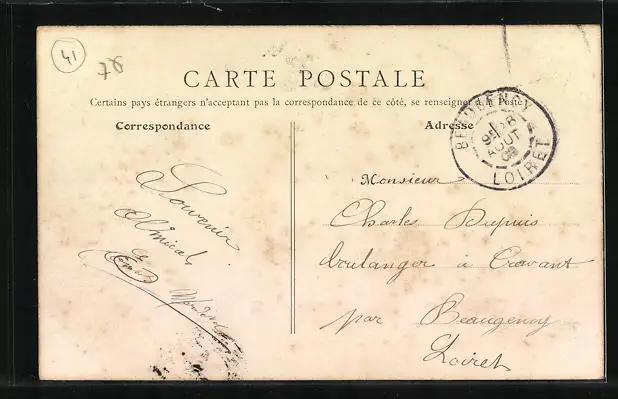 41
78
CARTE POSTALE
Certains pays étrangers n'acceptant pas la correspondance de ce côté, se renseigner à la Poste
Correspondance
Adresse
BEAUGENCY
28
AOUT
LOIRET
Souvenir
Amical
Monsieur
Charles Dupuis
boulanger à Cravant
par Beaugency
Loiret